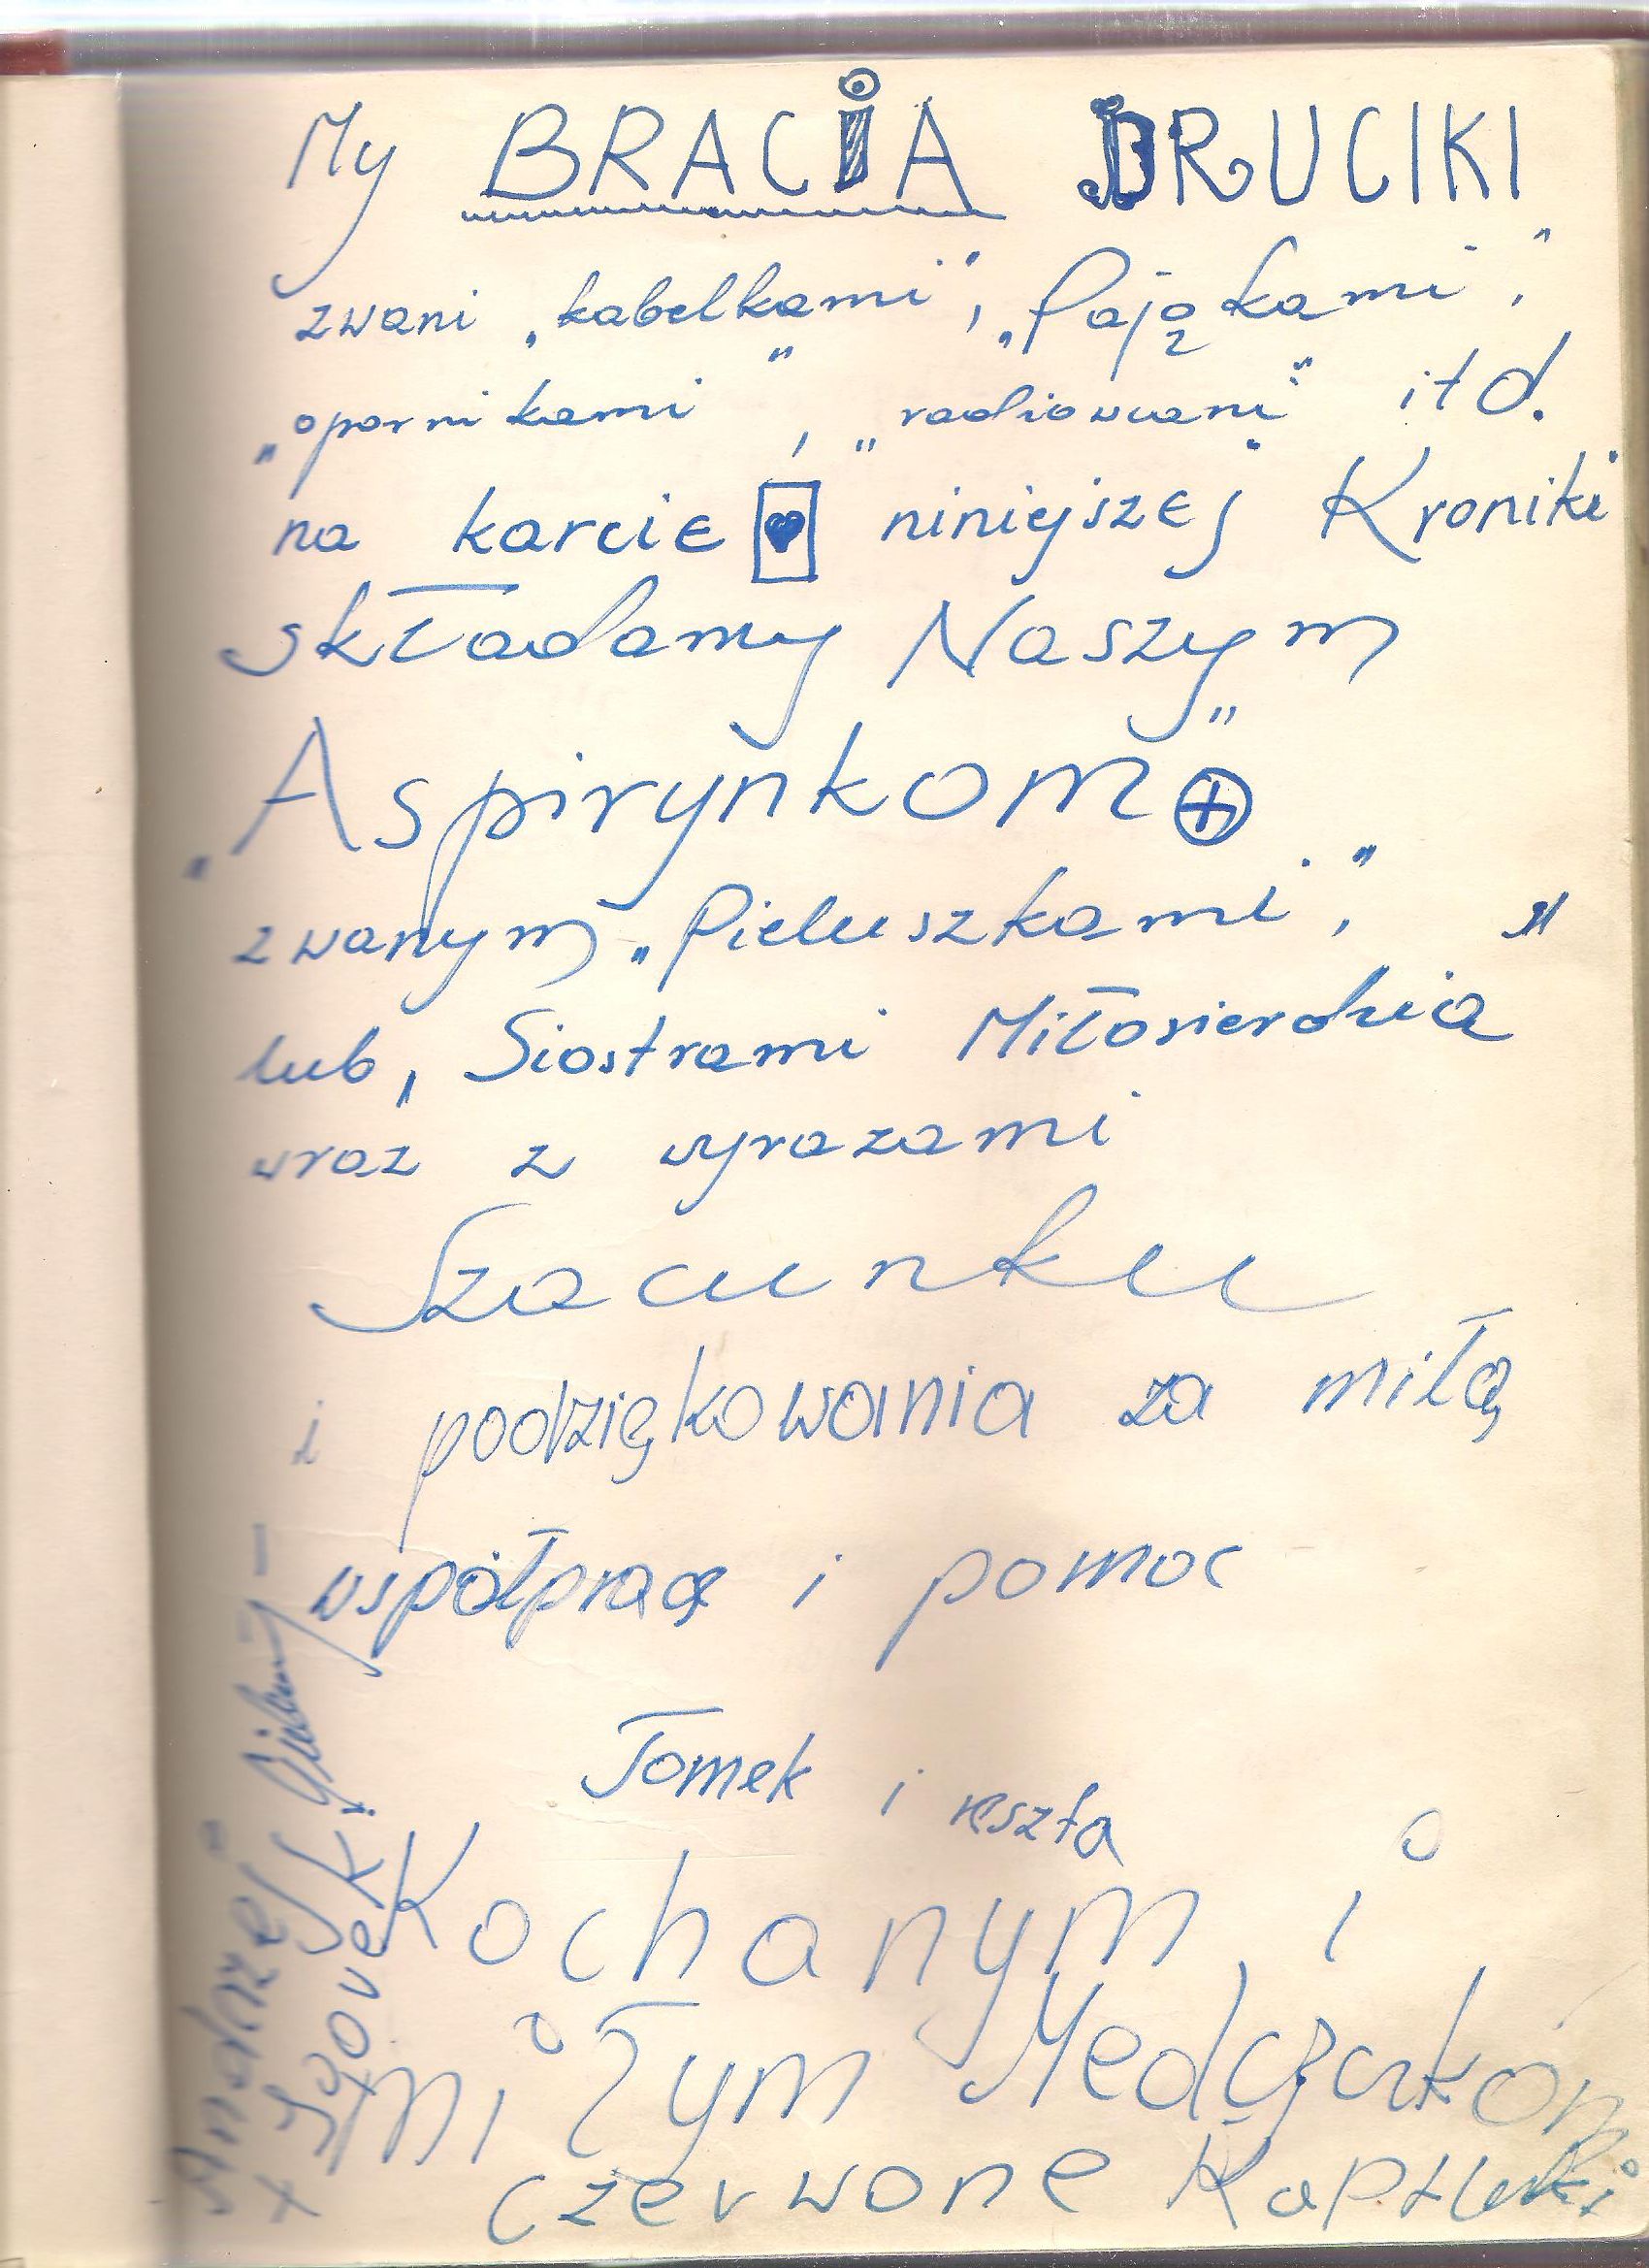 My BRACIA DRUCIKI
zwani „kabelkami", „Pająkami",
„opornikami", „radiowcami" itd.
na karcie niniejszej Kroniki
składamy Naszym
„Aspirynkom"
zwanym „Pieluszkami",
lub „Siostrami Miłosierdzia"
wraz z wyrazami
Szacunku
i podziękowania za miłą
współpracę i pomoc
Tomek i reszta
Kochanym i
miłym Medyczkom
czerwone Kapturki
Andrzej